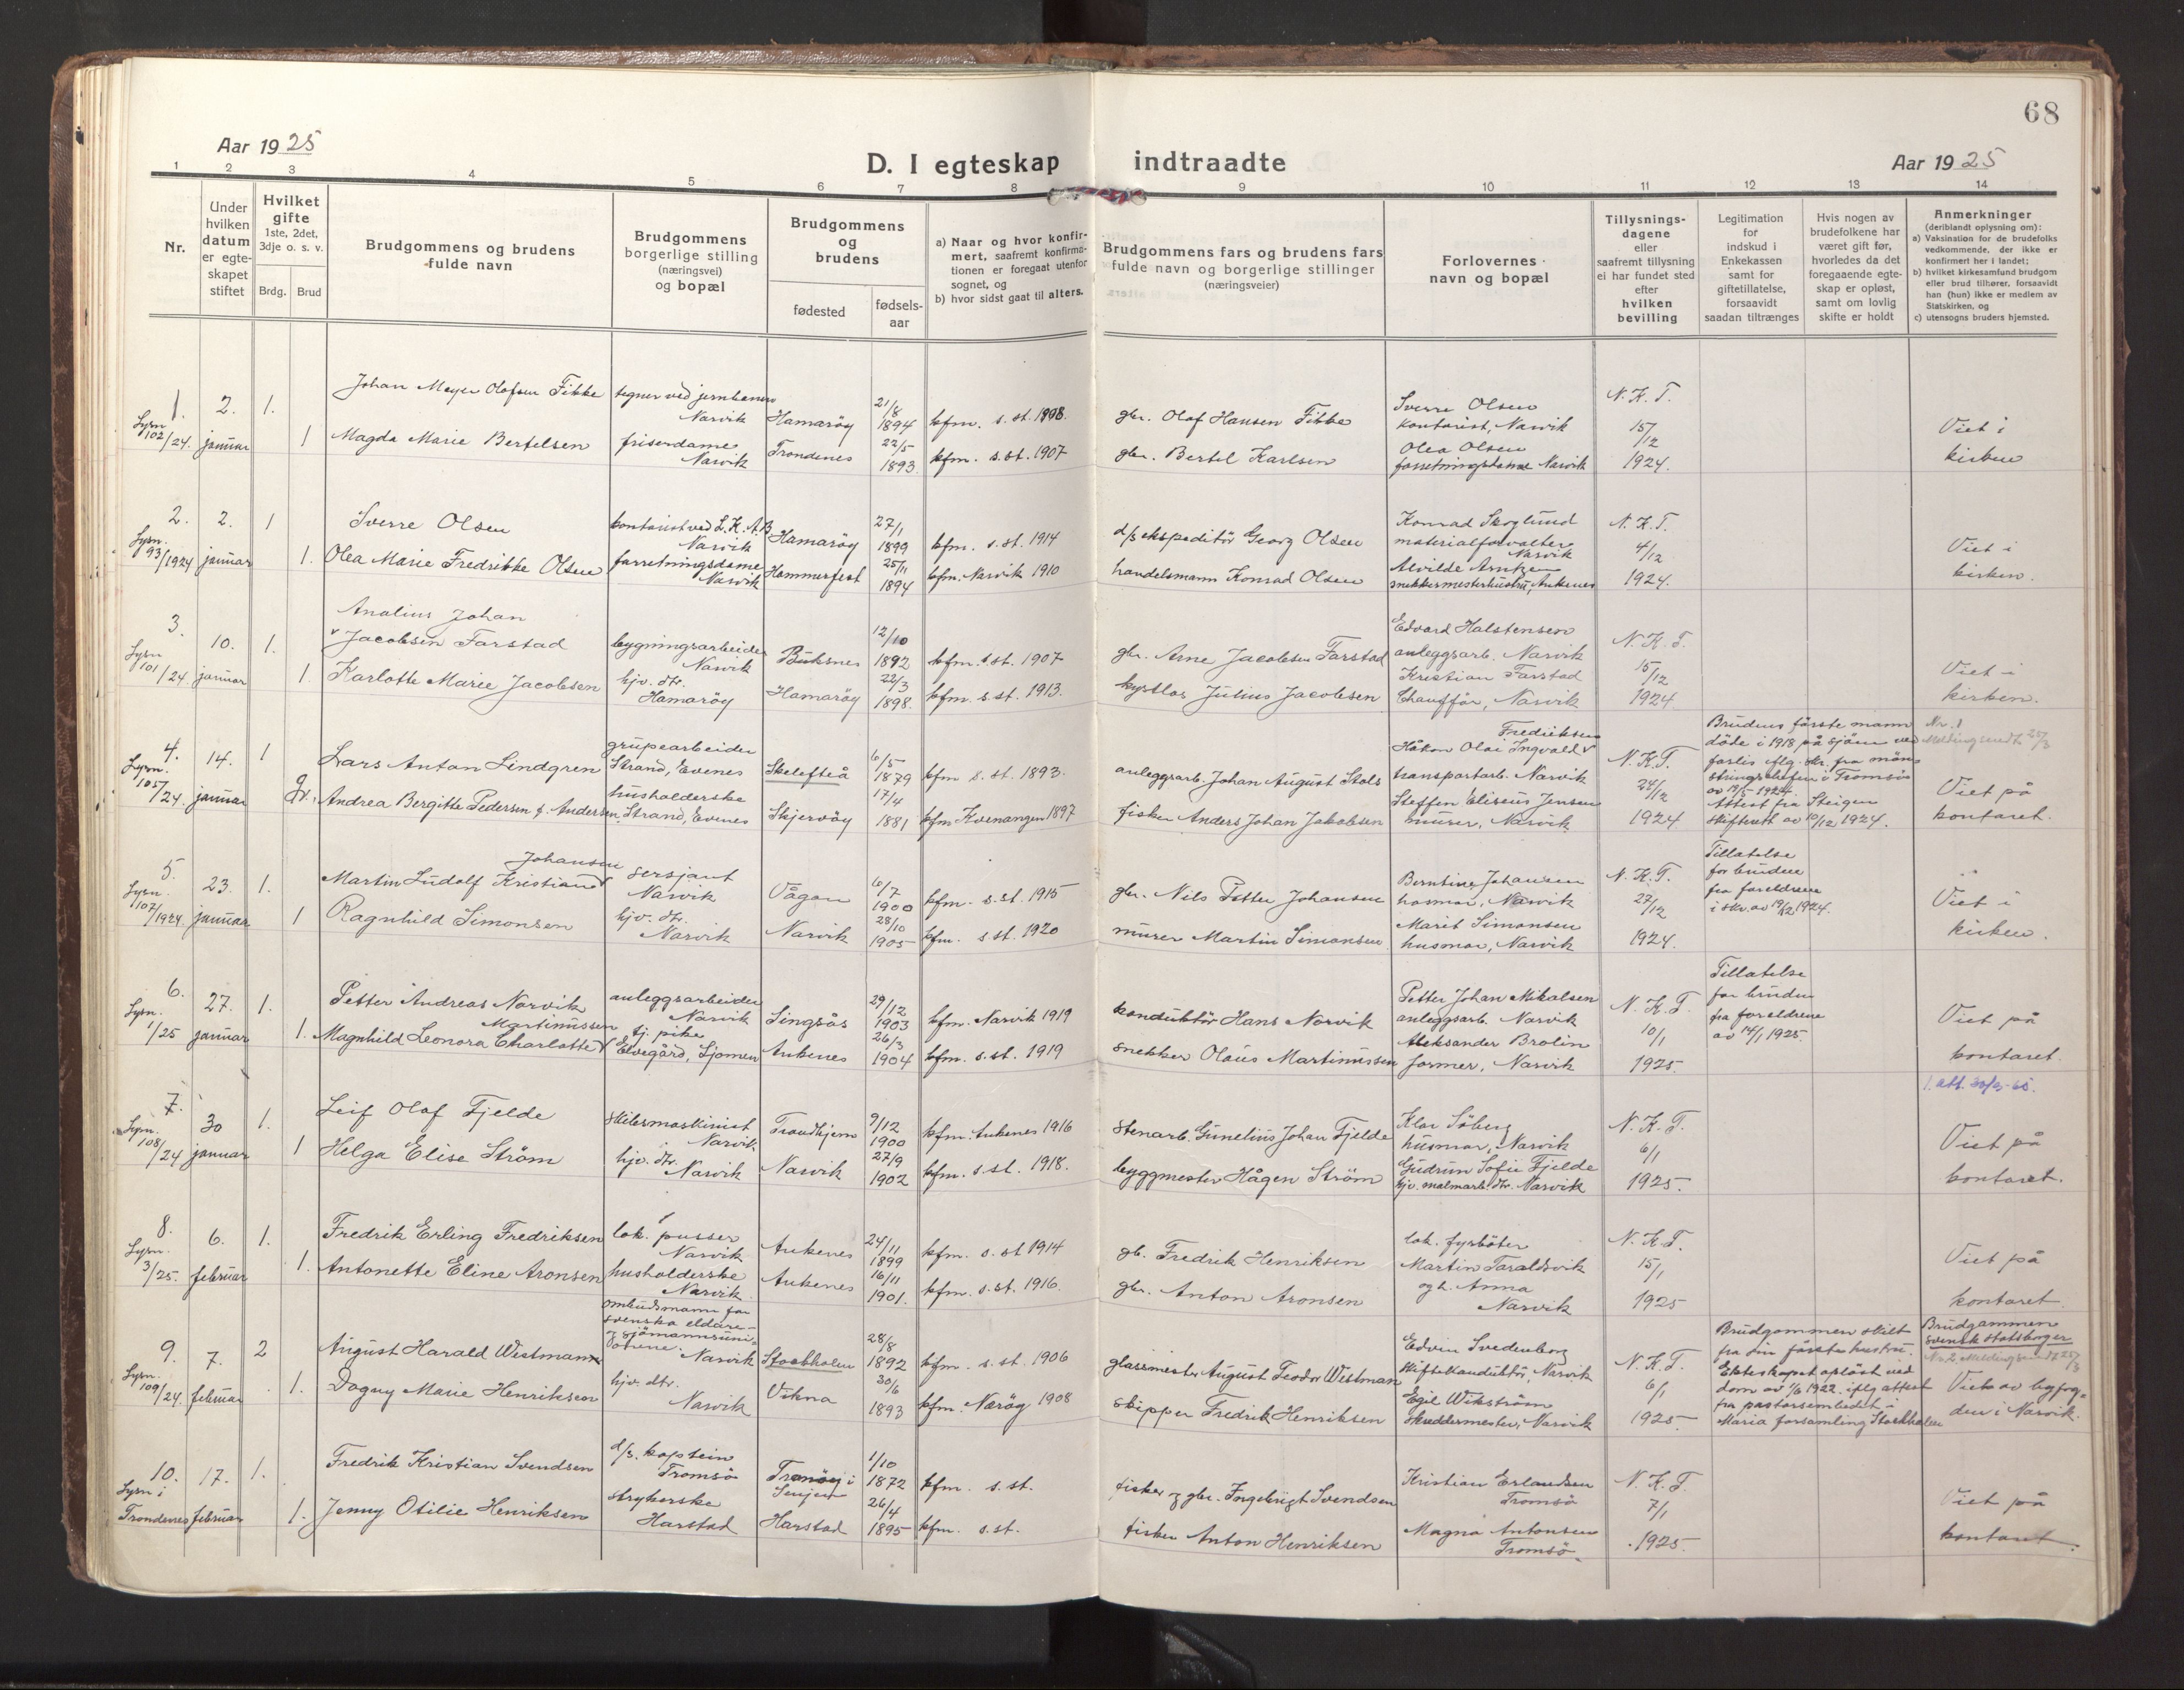 68
Aar 1925
D. I egteskap indtraadte
Aar 1925
1 2 3 4 5 6 7 8 9 10 11 12 13 14
Nr.
Under hvilken datum er egteskapet stiftet
Hvilket gifte 1ste, 2det, 3dje o. s. v.
Brdg. Brud
Brudgommens og brudens fulde navn
Brudgommens borgerlige stilling (næringsvei) og bopæl
Brudgommens og brudens
fødested
fødselsaar
a) Naar og hvor konfirmert, saafremt konfirmationen er foregaat utenfor sognet, og
b) hvor sidst gaat til alters.
Brudgommens fars og brudens fars fulde navn og borgerlige stillinger (næringsveier)
Forlovernes navn og bopæl
Tillysningsdagene eller saafremt tillysning ei har fundet sted efter hvilken bevilling
Legitimation for indskud i Enkekassen samt for giftetillatelse, forsaavidt saadan tiltrænges
Hvis nogen av brudefolkene har været gift før, hvorledes da det foregaaende egteskap er opløst, samt om lovlig skifte er holdt
Anmerkninger (deriblandt oplysning om):
a) Vaksination for de brudefolks vedkommende, der ikke er konfirmert her i landet;
b) hvilket kirkesamfund brudgom eller brud tilhører, forsaavidt han (hun) ikke er medlem av Statskirken, og
c) utensogns bruders hjemsted.
1. Lysn. 102/24. 2. januar 1. Johan Meyer Olafsen Fikke tegner ved jernbanen Narvik Hamarøy 21/8 1894 kfm. s. st. 1908. gbr. Olaf Hansen Fikke Sverre Olsen kontorist, Narvik N. K. T. 15/12 1924. Viet i kirken
1 Magda Marie Bertelsen friserdame Narvik Trondenes 22/5 1893 kfm. s. st. 1907 gbr. Bertel Karlsen Olea Olsen forretningsdame Narvik
2. Lysn. 93/1924 2. januar 1 Sverre Olsen kontorist ved L. K. A. B Narvik Hamarøy 27/1 1899 kfm. s. st. 1914 d/s ekspeditör Georg Olsen Konrad Skoglund materialforvalter Narvik N. K. T. 4/12 1924. Viet i kirken.
1. Olea Marie Fredrikke Olsen forretningsdame Narvik Hammerfest 25/11 1894 kfm. Narvik 1910 handelsmann Konrad Olsen Alvilde Arntzen snekkermesterhustru, Ankenes
3. Lysn 101/24 10. januar 1. Analius Johan Jacobsen Farstad bygningsarbeider Narvik Buksnes 12/10 1892 kfm. s. st. 1907 gbr. Arne Jacobsen Farstad Edvard Halstensen anleggsarb. Narvik N. K. T. 15/12 1924 Viet i kirken.
1. Karlotte Marie Jacobsen hjv. dtr. Hamarøy Hamarøy 22/3 1898. kfm. s. st. 1913. kystlos Julius Jacobsen Kristian Farstad Chauffør, Narvik
4. Lysn. 105/24. 14. januar 1 Lars Anton Lindgren grubearbeider Strand, Evenes Skelefteå 6/5 1879 kfm s. st. 1893. anleggsarb. Johan August Stols Håkon Olai Ingvald Fredriksen transportarb. Narvik N. K. T. 24/12 1924 Brudens første mann döde i 1918 på sjöen ved forlis iflg. skr. fra mönstringschefen i Tromsö av 19/5-1924. Attest fra Steigen skifterett av 10/12 1924. Nr. 1 Melding sendt 25/3 Viet på kontoret.
Andrea Bergitte Pedersen f. Andersen husholderske Strand, Evenes Skjervøy 17/4 1881 kfm Kvenangen 1897 fisker Anders Johan Jakobsen Steffen Eliseus Jensen murer, Narvik
5. Lysn. 107/1924. 23. januar 1. Martin Ludolf Kristian Johansen sersjant Narvik Vågan 6/7 1900 kfm. s. st 1915 gbr. Nils Petter Johansen Berntine Johansen husmor, Narvik N. K. T. 27/12 1924. Tillatelse for bruden fra foreldrene i skr. av 19/12 1924. Viet i kirken.
1 Ragnhild Simonsen hjv. dtr. Narvik Narvik 28/10 1905 kfm. s. st. 1920 murer Martin Simonsen Marit Simonsen husmor, Narvik
6. Lysn. 1/25 27. januar 1. Petter Andreas Norvik anleggsarbeider Narvik Singsås 29/12 1903 kfm. Narvik 1919 konduktör Hans Norvik Petter Johan Mikalsen anleggsarb. Narvik N. K. T 10/1 1925. Tillatelse for bruden fra foreldrene av 14/1 1925. Viet på kontoret.
1. Magnhild Leonora Charlotte Martinussen tj. pike Elvegård, Sjomen Ankenes 26/3 1904 kfm. s. st. 1919 snekker Olaus Martinussen Aleksander Brolin former, Narvik
7. Lysn. 108/24 30 januar 1. Leif Olaf Fjelde skibsmaskinist Narvik Trondhjem 9/12 1900 kfm. Ankenes 1916 stenarb. Gunelius Johan Fjelde Klar Söberg husmor, Narvik N. K. T. 6/1 1925. Viet på kontoret.
1 Helga Elise Ström hjv. dtr. Narvik Narvik 27/9 1902 kfm. s. st. 1918. byggmester Hågen Ström Gudrun Sofie Fjelde hjv. malmarb. dtr. Narvik
8. Lysn. 3/25. 6. februar 1. Fredrik Erling Fredriksen lok. pusser Narvik Ankenes 24/11 1899 kfm. s. st 1914 gb. Fredrik Henriksen lok. fyrböter Martin Taraldsvik N. K. T. 15/1 1925 Viet på kontoret
1. Antonette Eline Aronsen husholderske Narvik Ankenes 16/11 1901. kfm. s. st. 1916. gbr. Anton Aronsen og h. Anna Narvik
9. Lysn. 109/24. 7. februar 2 August Harald Westman ombudsmann for svenska eldare- og sjömannsunionene. Narvik Stockholm 28/8 1892 kfm. s. st. 1906 glassmester August Teodor Westman Edvin Svedenborg skiftekonduktör, Narvik N. K. T. 6/1 1925 Brudgommen skilt fra sin første hustru. Ekteskapet oplöst ved dom av 1/6 1922. iflg attest fra pastorsembedet i Maria forsamling Stockholm Brudgommen svensk statsborger Nr. 2. Melding sendt 25/3 Viet av byfogden i Narvik.
1. Dagny Marie Henriksen hjv. dtr. Narvik Vikna 30/6 1893 kfm. Nærøy 1908 skipper Fredrik Henriksen Egil Wikström skreddermester, Narvik
10. Lysn i Trondenes 17. februar 1. Fredrik Kristian Svendsen d/s. kaptein Tromsö Tranøy i Senjen 1/10 1872 kfm. s. st. fisker og gbr. Ingebrigt Svendsen Kristian Erlandsen Tromsö N. K. T. 7/1 1925. Viet på kontoret.
1. Jenny Otilie Henriksen strykerske Harstad Harstad 26/4 1895 kfm. s. st. fisker Anton Henriksen Magna Antonsen Tromsö